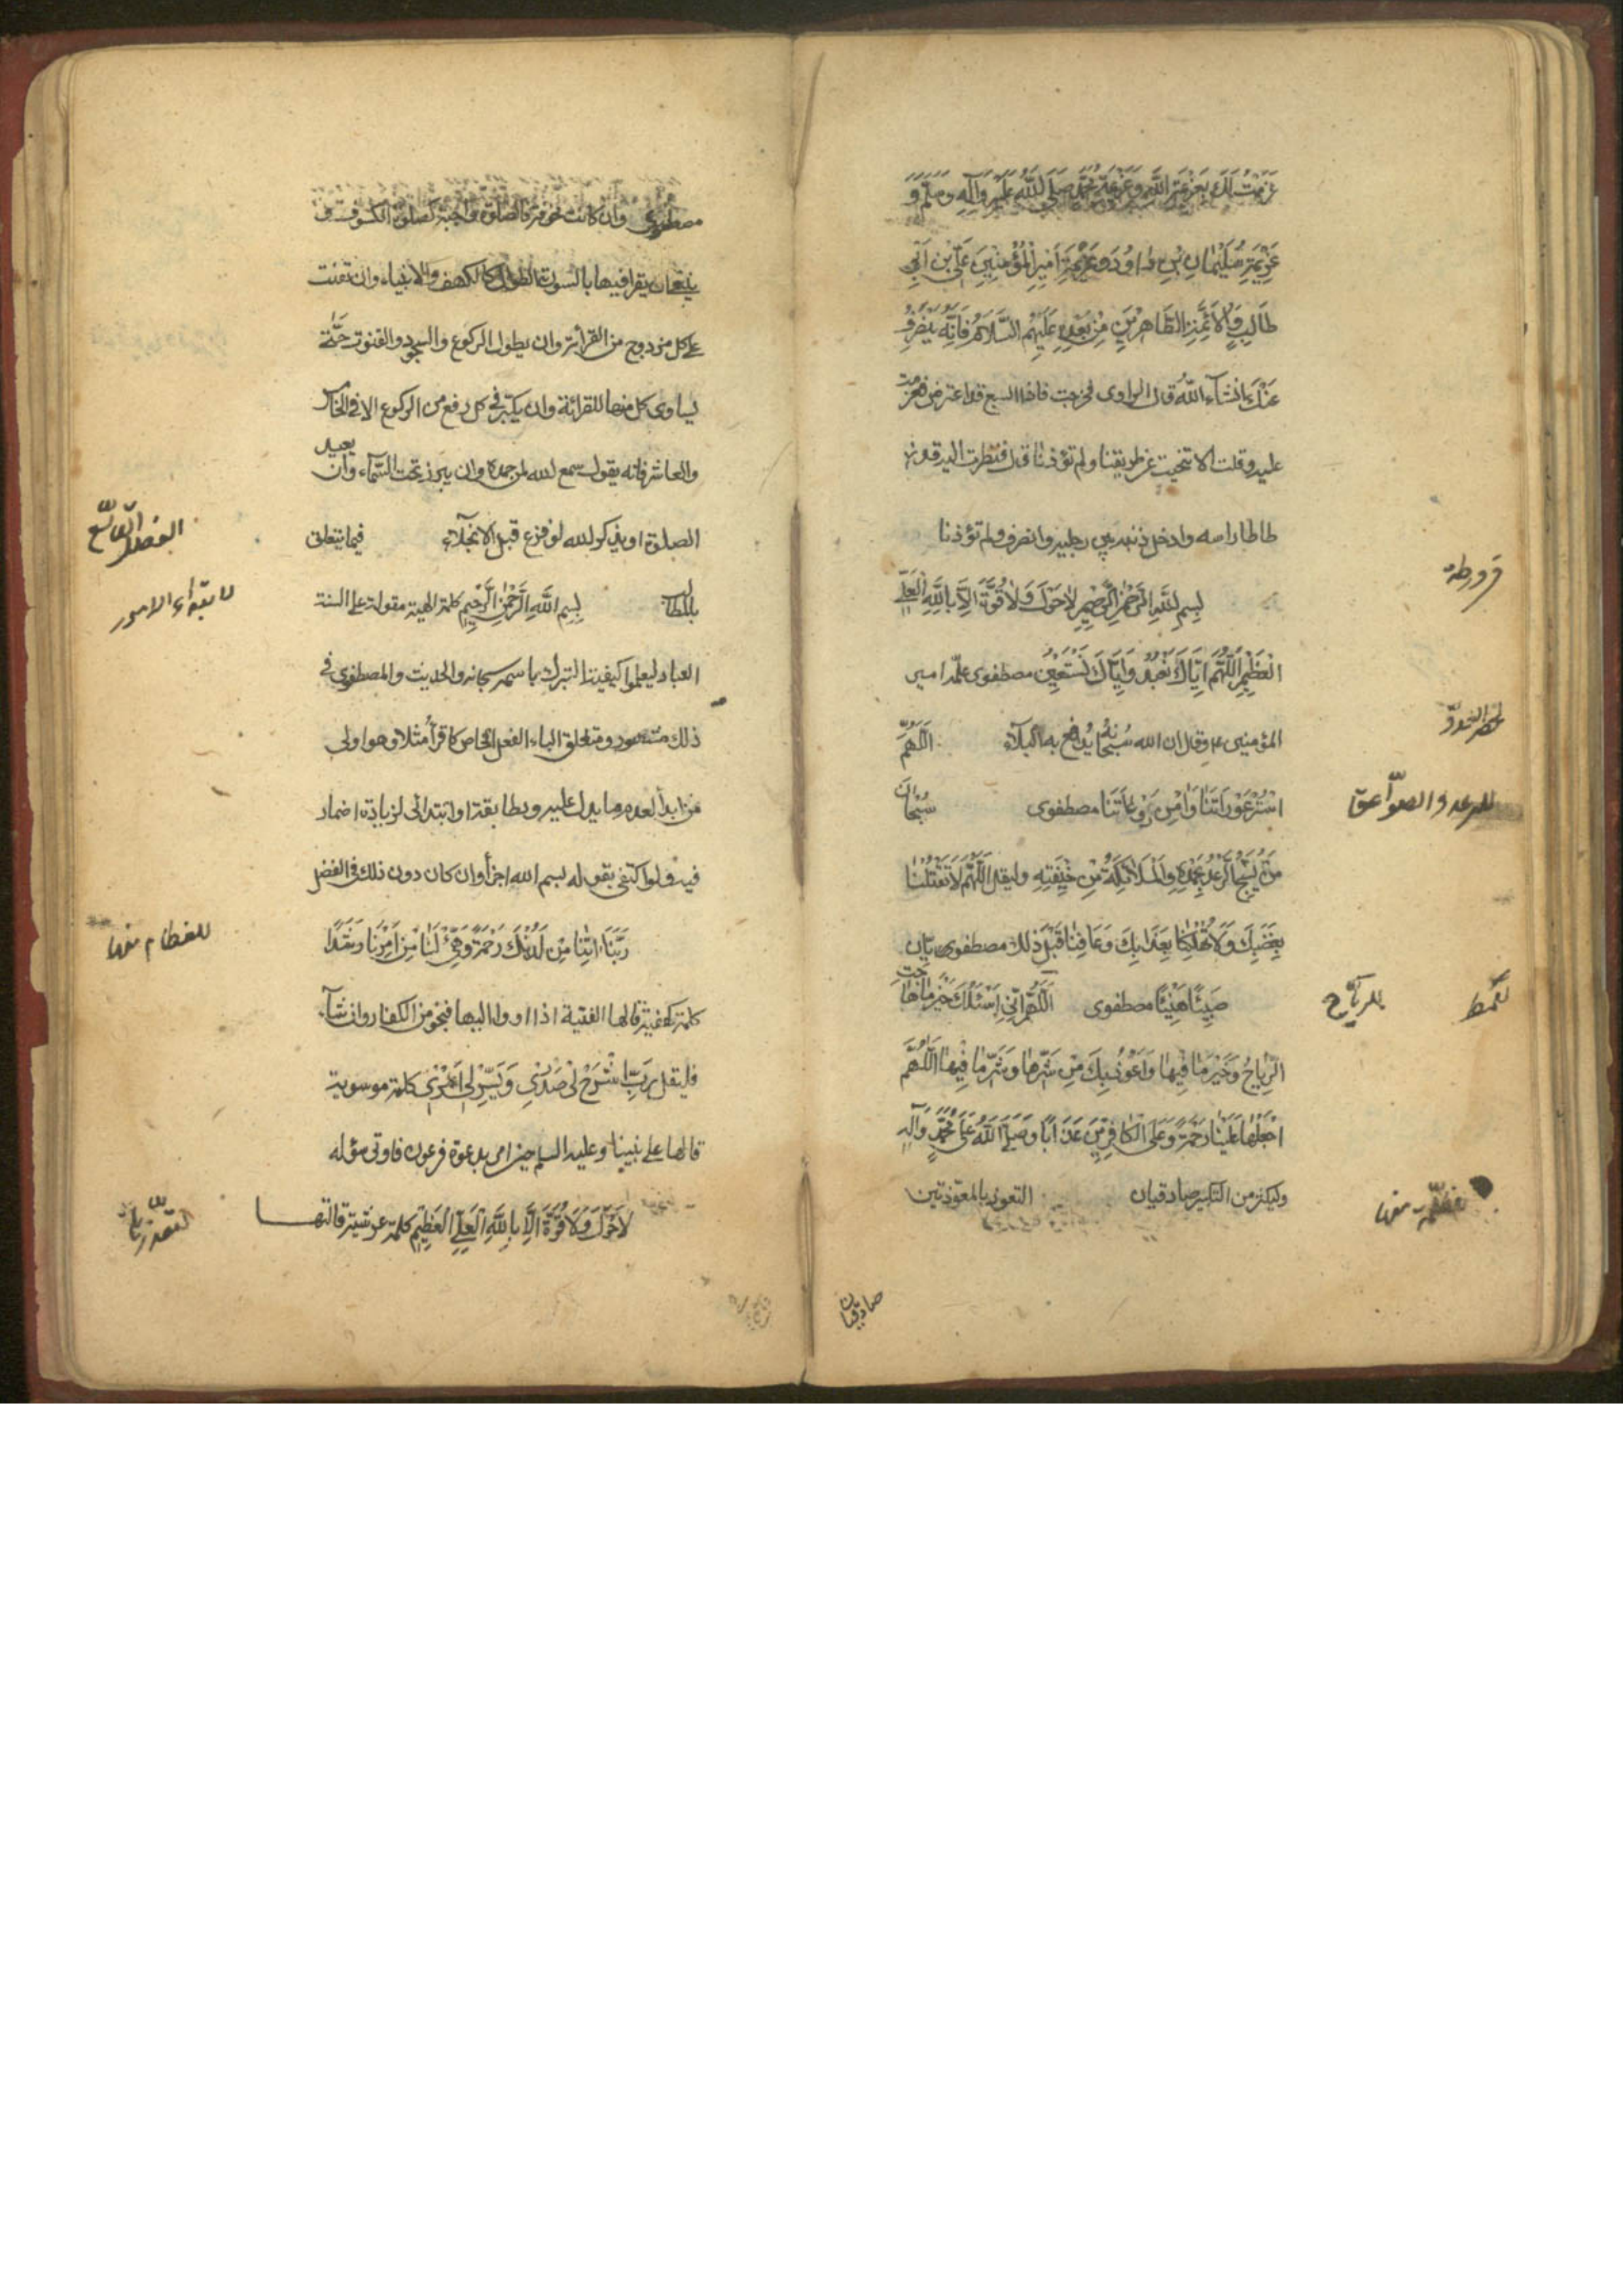 عَزَمْتُ عَلَيْكَ بِعَزِيمَةِ اللَّهِ وَعَزِيمَةِ مُحَمَّدٍ صَلَّى اللَّهُ عَلَيْهِ وَآلِهِ وَسَلَّمَ وَ
عَزِيمَةِ سُلَيْمَانَ بْنِ دَاوُدَ وَعَزِيمَةِ أَمِيرِ الْمُؤْمِنِينَ عَلِيِّ بْنِ أَبِي
طَالِبٍ وَالْأَئِمَّةِ الطَّاهِرِينَ مِنْ بَعْدِهِ عَلَيْهِمُ السَّلَامُ فَإِنَّهُ يَنْصَرِفُ
عَنْكَ إِنْشَاءَ اللَّهُ قال الراوى فخرجت فاذا السبع قد اعترض فعزمت
عليه وقلت الا تنحيت عن طريقنا ولم تؤذنا قال فنظرت اليه قد
طاطا راسه وادخل ذنبه بين رجليه وانصرف ولم تؤذنا
بِسْمِ اللَّهِ الرَّحْمٰنِ الرَّحِيمِ لَا حَوْلَ وَلَا قُوَّةَ إِلَّا بِاللَّهِ الْعَلِيِّ
الْعَظِيمِ اللَّهُمَّ إِيَّاكَ نَعْبُدُ وَإِيَّاكَ نَسْتَعِينُ مصطفوى علّمه امير
المؤمنين ع وقال ان الله سُبْحَانَهُ يُدافع به البلآء اَللّهُمَّ
اسْتُرْ عَوْرَاتَنَا وَآمِنْ رَوْعَاتَنَا مصطفوى سُبْحَانَ
مَنْ يُسَبِّحُ الرَّعْدُ بِحَمْدِهِ وَالْمَلَائِكَةُ مِنْ خِيفَتِهِ وليقل اَللّهُمَّ لَا تَقْتُلْنَا
بِغَضَبِكَ وَلَا تُهْلِكْنَا بِعَذَابِكَ وَعَافِنَا قَبْلَ ذٰلِكَ مصطفوى
صَيِّبًا هَنِيئًا مصطفوى اَللّهُمَّ إِنِّي أَسْئَلُكَ خَيْرَ مَا هَاجَتِ
الرِّيَاحُ وَخَيْرَ مَا فِيهَا وَأَعُوذُ بِكَ مِنْ شَرِّهَا وَشَرِّ مَا فِيهَا اَللّهُمَّ
اجْعَلْهَا عَلَيْنَا رَحْمَةً وَعَلَى الْكَافِرِينَ عَذَابًا وَصَلَّى اللَّهُ عَلَى مُحَمَّدٍ وَآلِهِ
وليكثر من التكبير صادقيان التعوذ بالمعوّذتين
للرعد والصواعق
للريّاح
صادقيان
مصطفوى وان كانت مخوفة فالصلوة واجبة كصلوة الكسوف و
ينبغى ان يقرا فيها بالسورة الطوال كالكهف والانبياء وان تقنت
على كل مزدوج من القرائة وان يطول الركوع والسجود والقنوت حتّى
يساوى كل منها للقرائة وان يكبّر فى كل رفع من الركوع الا فى الخامس
والعاشر فانه يقول سمع الله لمن حمده وان يبرز تحت السّمآء وان يعيد
الصلوة او يذكر الله لو فرغ قبل الانجلآء فيما يتعلق
بالمطالب بِسْمِ اللَّهِ الرَّحْمٰنِ الرَّحِيمِ كلمة الهية مقولة على السنة
العباد ليعلموا كيفية التبرك باسمه سبحانه والحديث والمصطفوى فى
ذلك مشهور ومتعلق الباء الفعل الخاص كاقرأ مثلا وهو اولى
من ابدأ لعدم ما يدل عليه ويطابقه او ابتدائى لزيادة اضمار
فيه ولو اكتفى بقوله بسم الله اجزأ وان كان دون ذلك فى الفضل
رَبَّنَا آتِنَا مِنْ لَدُنْكَ رَحْمَةً وَهَيِّئْ لَنَا مِنْ أَمْرِنَا رَشَدًا
كلمة كهفية قالها الفتية اذا اووا اليها فنجو من الكفار وان شآء
فليقل رَبِّ اشْرَحْ لِي صَدْرِي وَيَسِّرْ لِي أَمْرِي كلمة موسوية
قالها على نبينا وعليه السلم حين امر بدعوة فرعون فاوتى سؤله
لَا حَوْلَ وَلَا قُوَّةَ إِلَّا بِاللَّهِ الْعَلِيِّ الْعَظِيمِ كلمة عرشية قالتها
الفصل التاسع
لابتداء الامور
للعظام منها